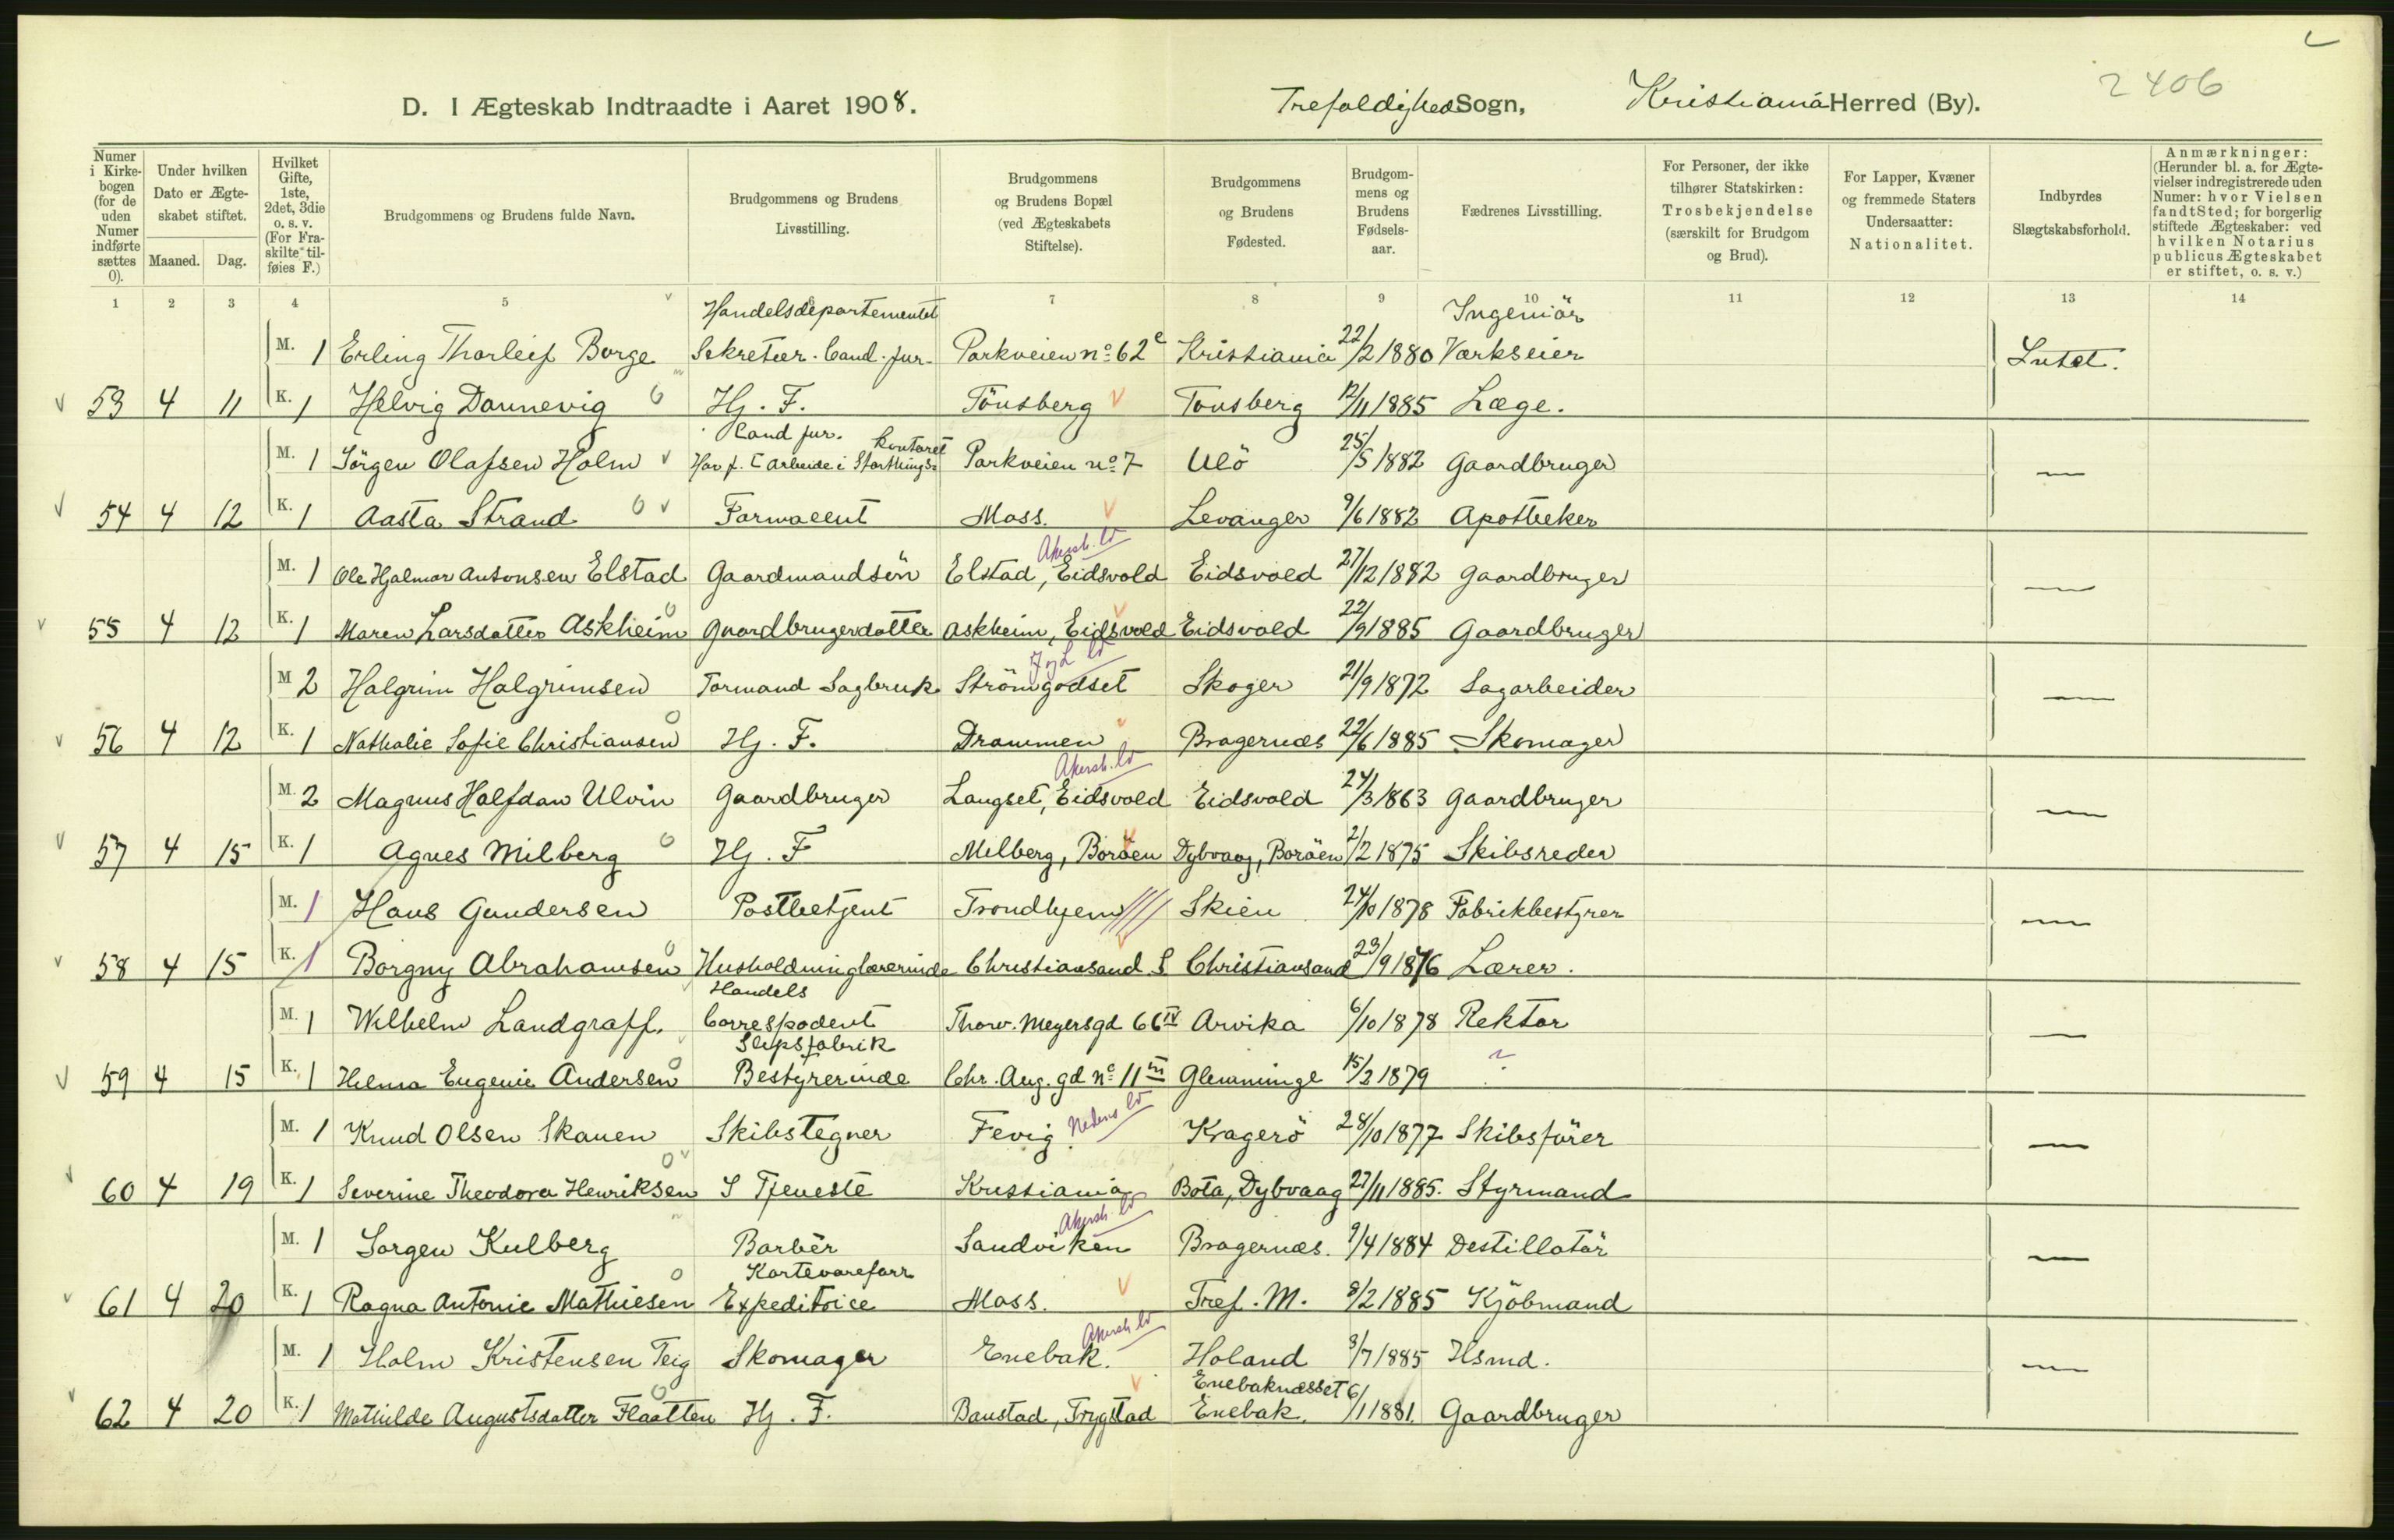 2406
D. I Ægteskab Indtraadte i Aaret 1908. Trefoldighed Sogn, Kristiania Herred (By).
Numer i Kirkebogen (for de uden Numer indførte sættes 0).
Under hvilken Dato er Ægteskabet stiftet.
Maaned. Dag.
Hvilket Gifte, 1ste, 2det, 3die o. s. v. (For Fraskilte tilføies F.)
Brudgommens og Brudens fulde Navn.
Brudgommens og Brudens Livsstilling.
Brudgommens og Brudens Bopæl (ved Ægteskabets Stiftelse).
Brudgommens og Brudens Fødested.
Brudgommens og Brudens Fødselsaar.
Fædrenes Livsstilling.
For Personer, der ikke tilhører Statskirken: Trosbekjendelse (særskilt for Brudgom og Brud).
For Lapper, Kvæner og fremmede Staters Undersaatter: Nationalitet.
Indbyrdes Slægtskabsforhold.
Anmærkninger: (Herunder bl. a. for Ægtevielser indregistrerede uden Numer: hvor Vielsen fandt Sted; for borgerlig stiftede Ægteskaber: ved hvilken Notarius publicus Ægteskabet er stiftet, o. s. v.)
1 2 3 4 5 6 7 8 9 10 11 12 13 14
Handelsdepartementet Ingeniör
M. 1 Erling Thorleif Borge Sekretær. Cand. jur. Parkveien no 62 c Kristiania 22/2 1880 Værkseier Intet.
53 4 11 K. 1 Helvig Dannevig Hj. F. Tönsberg Tonsberg 12/11 1885 Læge.
Cand jur. kontoret
M. 1 Jörgen Olafsen Holm Har f. T arbeide i Storthings= Parkveien no 7 Ulö 25/5 1882 Gaardbruger —
54 4 12 K. 1 Aasta Strand Farmaceut Moss. Levanger 9/6 1882 Apotheker
Akersh. ld
M. 1 Ole Hjalmar Antonsen Elstad Gaardmandsön Elstad, Eidsvold Eidsvold 27/12 1882 Gaardbruger —
55 4 12 K. 1 Maren Larsdatter Askheim Gaardbrugerdatter Askheim, Eidsvold Eidsvold 22/9 1885 Gaardbruger
J & L ld
M 2 Halgrim Halgrimsen Formand Sagbruk Strömgodset Skoger 21/9 1872 Sagarbeider —
56 4 12 K. 1 Nathalie Sofie Christiansen Hj. F. Drammen Bragernæs 22/6 1885 Skomager
Akersh. ld
M. 2 Magnus Halfdan Ulvin Gaardbruger Langset, Eidsvold Eidsvold 24/3 1863 Gaardbruger —
57 4 15 K. 1 Agnes Milberg Hj. F Milberg, Boröen Dybvaag, Boröen 2/2 1875 Skibsreder
M. 1 Hans Gundersen Postbetjent Trondhjem Skien 24/10 1878 Fabrikbestyrer —
58 4 15 K. 1 Borgny Abrahamsen Husholdninglærerinde Christiansand S Christiansand 23/9 1876 Lærer.
Handels
M. 1 Wilhelm Landgraff. Correspodent Thorv. Meyersgd 66 IV Arvika 6/10 1878 Rektor —
Slipsfabrik
59 4 15 K. 1 Helma Eugenie Andersen Bestyrerinde Chr. Aug. gd no 11 III Glemminge 15/2 1879 ?
Nedenes ld
M. 1 Knud Olsen Skauen Skibstegner Fevig. Kragerö 28/10 1877 Skibsförer —
60 4 19 K. 1 Severine Theodora Henriksen I Tjeneste Kristiania Bota, Dybvaag 27/11 1885. Styrmand
Akersh. ld
M. 1 Jorgen Kulberg Barbér Sandviken Bragernæs. 9/4 1884 Destillatör —
Kortevareforr
61 4 20 K. 1 Ragna Antonie Mathiesen Expeditrice Moss. Tref. M. 8/2 1885 Kjöbmand
Akersh. ld
M. 1 Holm Kristensen Teig Skomager Enebak. Holand 8/7 1885 Hsmd. —
Enebaknesset
62 4 20 K. 1 Mathilde Augustsdatter Flaatten Hj. F. Baustad, Trygstad Enebak. 6/1 1881. Gaardbruger